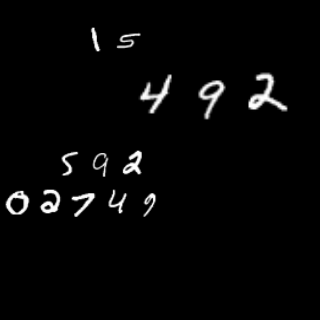 15
492
592
02749